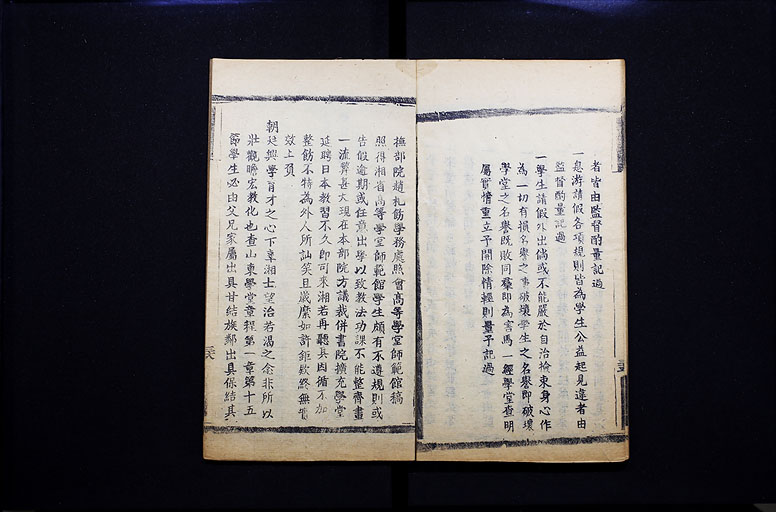 者皆由監督酌量記過
一息游請假各項規則皆為學生公益起見違者由
監督酌量記過
一學生請假外出倘或不能嚴於自治檢束身心作
為一切有損名譽之事破壞學生之名譽即破壞
學堂之名譽既敗同羣即為害馬一經學堂查明
屬實情重立予開除情輕則量予記過
撫部院趙札飭學務處照會高等學堂師範館稿
照得湘省高等學堂師範館學生頗有不遵規則或
告假逾期或任意出學以致教法功課不能整齊畫
一流弊甚大現在本部院方議裁併書院擴充學堂
延聘日本教習不久即可來湘若再聽其因循不加
整飭不特為外人所訕笑且歲糜如許鉅款終無實
效上負
朝廷興學育才之心下辜湘士望治若渴之念非所以
壯觀瞻宏教化也查山東學堂章程第一章第十五
節學生必由父兄家屬出具甘結族鄰出具保結其